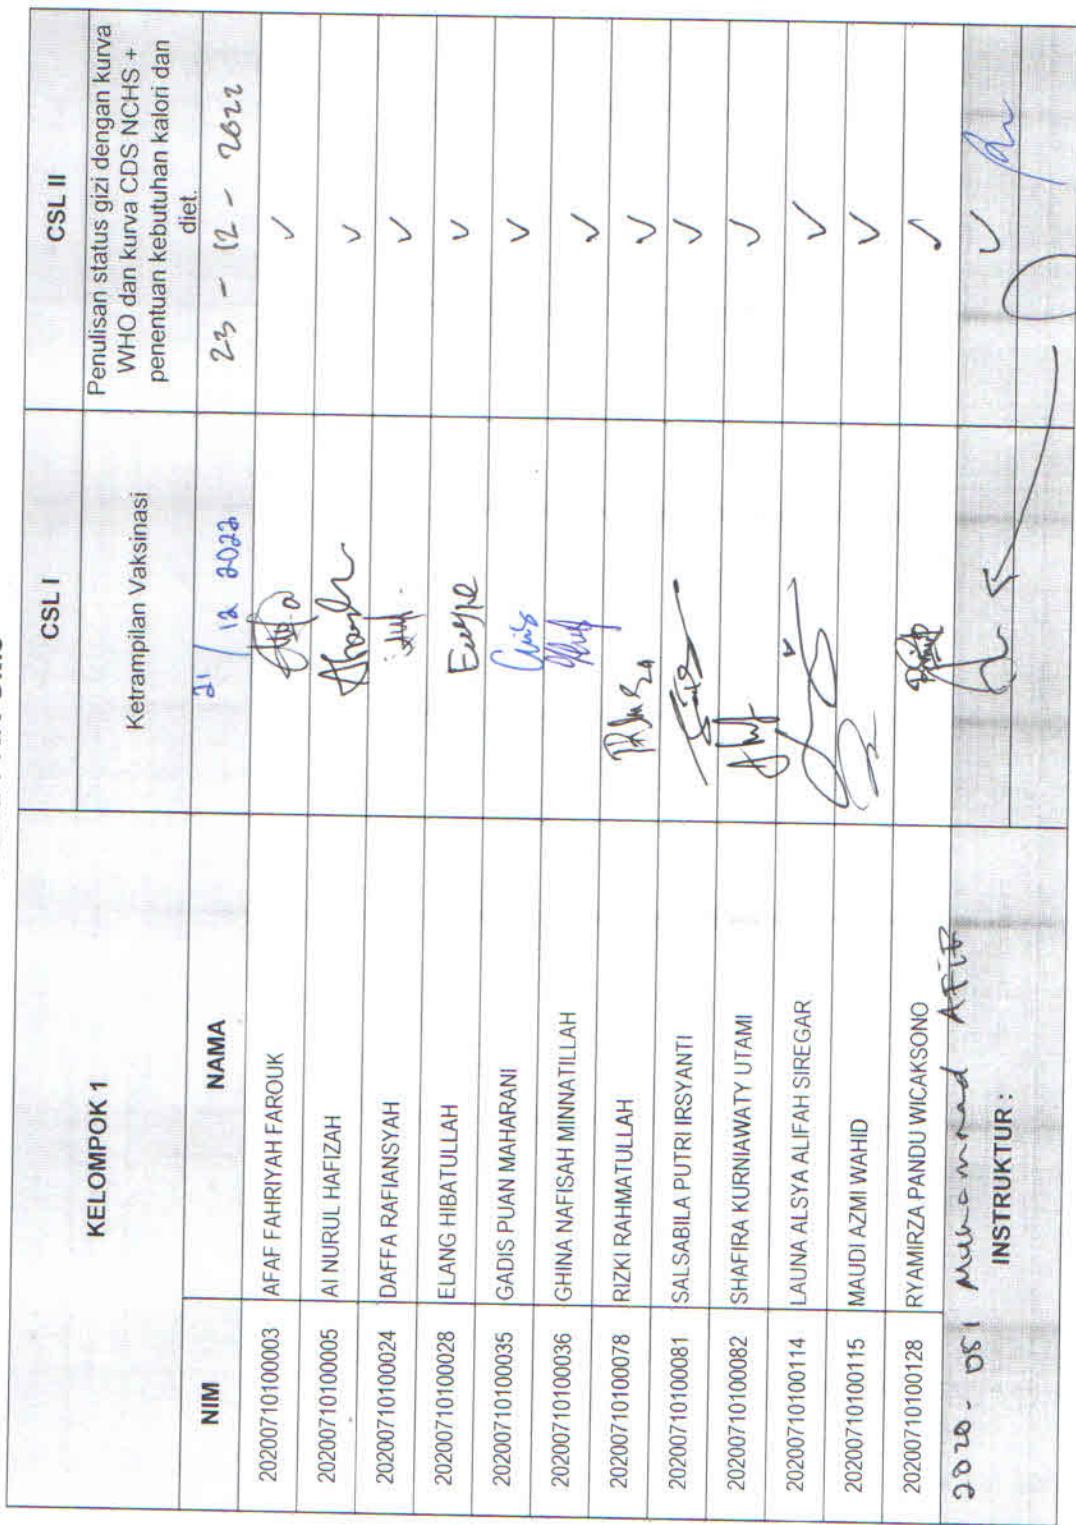 KELOMPOK 1 CSL I CSL II
Ketrampilan Vaksinasi
Penulisan status gizi dengan kurva
WHO dan kurva CDS NCHS +
penentuan kebutuhan kalori dan
diet.
NIM NAMA 21 / 12 2022 23 - 12 - 2022
20200710100003 AFAF FAHRIYAH FAROUK ✓
20200710100005 AI NURUL HAFIZAH ✓
20200710100024 DAFFA RAFIANSYAH ✓
20200710100028 ELANG HIBATULLAH ✓
20200710100035 GADIS PUAN MAHARANI ✓
20200710100036 GHINA NAFISAH MINNATILLAH ✓
20200710100078 RIZKI RAHMATULLAH ✓
20200710100081 SALSABILA PUTRI IRSYANTI ✓
20200710100082 SHAFIRA KURNIAWATY UTAMI ✓
20200710100114 LAUNA ALSYA ALIFAH SIREGAR ✓
20200710100115 MAUDI AZMI WAHID ✓
20200710100128 RYAMIRZA PANDU WICAKSONO ✓
2020 - 051 Muhammad Afif ✓
INSTRUKTUR :